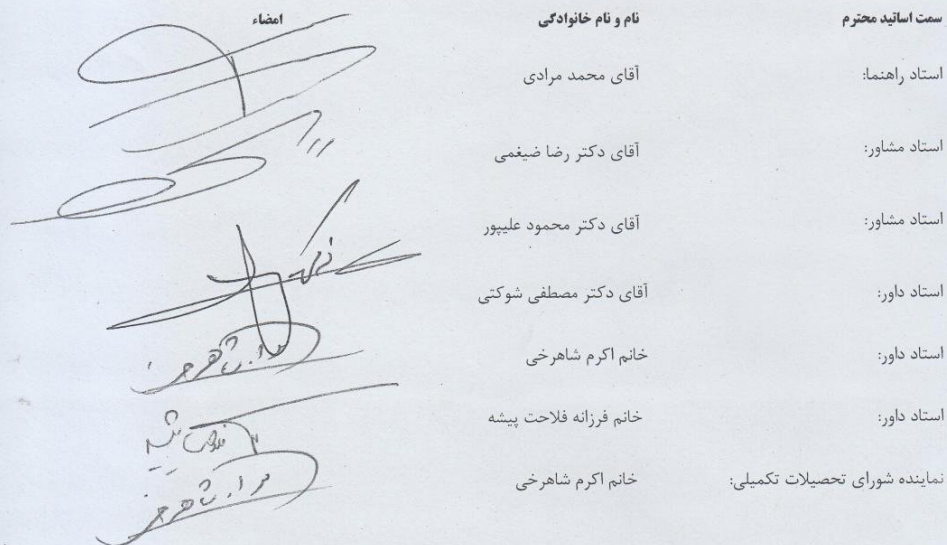 سمت اساتید محترم نام و نام خانوادگی امضاء
استاد راهنما: آقای محمد مرادی
استاد مشاور: آقای دکتر رضا ضیغمی
استاد مشاور: آقای دکتر محمود علیپور
استاد داور: آقای دکتر مصطفی شوکتی
استاد داور: خانم اکرم شاهرخی
استاد داور: خانم فرزانه فلاحت پیشه
نماینده شورای تحصیلات تکمیلی: خانم اکرم شاهرخی